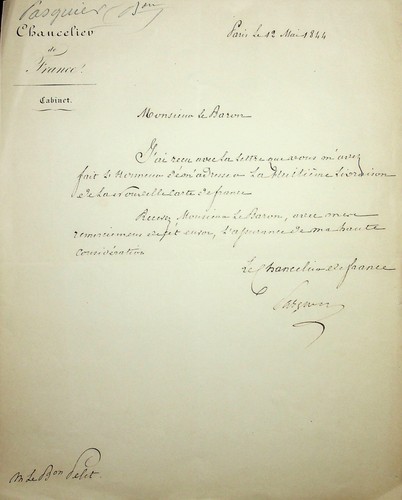 Pasquier (Bon)
Chancelier
de
France.
Cabinet.
Paris le 12 Mai 1844
Monsieur le Baron
J'ai reçu avec la lettre que vous m'avez
fait l'honneur de m'adresser la huitième livraison
de la nouvelle carte de france
Recevez Monsieur le Baron, avec mes
remerciemens de cet envoi, l'assurance de ma haute
considération
Le Chancelier de france
Pasquier
M. le Bon Pelet.